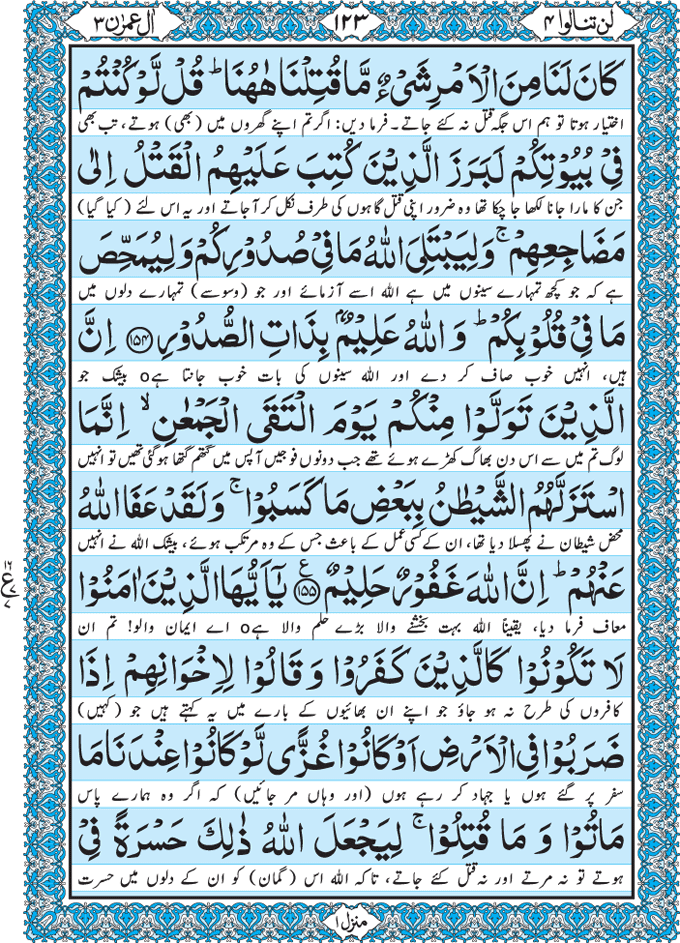 اٰل عمرٰن ۳
۱۲۳
لن تنالوا ۴
كَانَ لَنَا مِنَ الْاَمْرِ شَیْءٌ مَّا قُتِلْنَا هٰهُنَا ؕ قُلْ لَّوْ كُنْتُمْ
اختیار ہوتا تو ہم اس جگہ قتل نہ کئے جاتے۔ فرما دیں: اگر تم اپنے گھروں میں (بھی) ہوتے، تب بھی
فِیْ بُیُوْتِكُمْ لَبَرَزَ الَّذِیْنَ كُتِبَ عَلَیْهِمُ الْقَتْلُ اِلٰی
جن کا مارا جانا لکھا جا چکا تھا وہ ضرور اپنی قتل گاہوں کی طرف نکل کر آ جاتے اور یہ اس لئے (کیا گیا)
مَضَاجِعِهِمْ ۚ وَ لِیَبْتَلِیَ اللّٰهُ مَا فِیْ صُدُوْرِكُمْ وَ لِیُمَحِّصَ
ہے کہ جو کچھ تمہارے سینوں میں ہے اللہ اسے آزمائے اور جو (وسوسے) تمہارے دلوں میں
مَا فِیْ قُلُوْبِكُمْ ؕ وَ اللّٰهُ عَلِیْمٌۢ بِذَاتِ الصُّدُوْرِ ﴿۱۵۴﴾ اِنَّ
ہیں، انہیں خوب صاف کر دے اور اللہ سینوں کی بات خوب جانتا ہےo بیشک جو
الَّذِیْنَ تَوَلَّوْا مِنْكُمْ یَوْمَ الْتَقَی الْجَمْعٰنِ ۙ اِنَّمَا
لوگ تم میں سے اس دن بھاگ کھڑے ہوئے تھے جب دونوں فوجیں آپس میں گتھم گتھا ہو گئی تھیں تو انہیں
اسْتَزَلَّهُمُ الشَّیْطٰنُ بِبَعْضِ مَا كَسَبُوْا ۚ وَ لَقَدْ عَفَا اللّٰهُ
محض شیطان نے پھسلا دیا تھا، ان کے کسی عمل کے باعث جس کے وہ مرتکب ہوئے، بیشک اللہ نے انہیں
عَنْهُمْ ؕ اِنَّ اللّٰهَ غَفُوْرٌ حَلِیْمٌ ﴿۱۵۵﴾ ع یٰۤاَیُّهَا الَّذِیْنَ اٰمَنُوْا
۱۶ ع ۷
معاف فرما دیا، یقیناً اللہ بہت بخشنے والا بڑے حلم والا ہےo اے ایمان والو! تم ان
لَا تَكُوْنُوْا كَالَّذِیْنَ كَفَرُوْا وَ قَالُوْا لِاِخْوَانِهِمْ اِذَا
کافروں کی طرح نہ ہو جاؤ جو اپنے ان بھائیوں کے بارے میں یہ کہتے ہیں جو (کہیں)
ضَرَبُوْا فِی الْاَرْضِ اَوْ كَانُوْا غُزًّی لَّوْ كَانُوْا عِنْدَنَا مَا
سفر پر گئے ہوں یا جہاد کر رہے ہوں (اور وہاں مر جائیں) کہ اگر وہ ہمارے پاس
مَاتُوْا وَ مَا قُتِلُوْا ۚ لِیَجْعَلَ اللّٰهُ ذٰلِكَ حَسْرَةً فِیْ
ہوتے تو نہ مرتے اور نہ قتل کئے جاتے، تاکہ اللہ اس (گمان) کو ان کے دلوں میں حسرت
منزل ۱